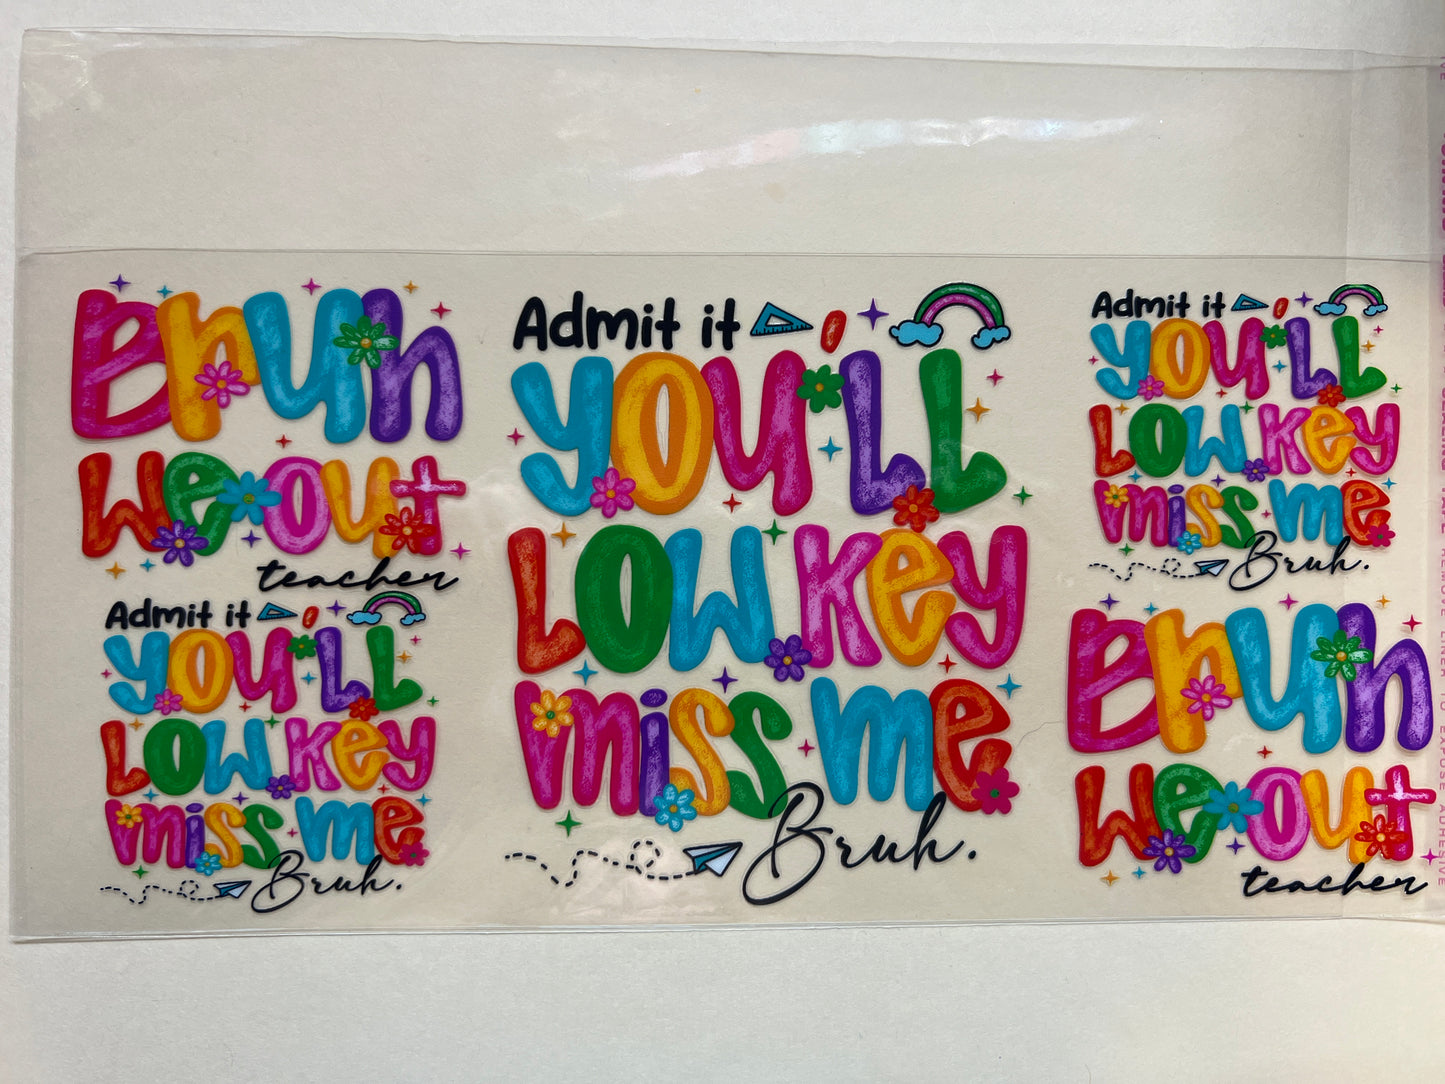 Bruh
we out
teacher
Admit it
you'll
LOW Key
miss me
Bruh.
Admit it
you'll
LOW Key
miss me
Bruh.
Admit it
you'll
LOW Key
miss me
Bruh.
Bruh
we out
teacher